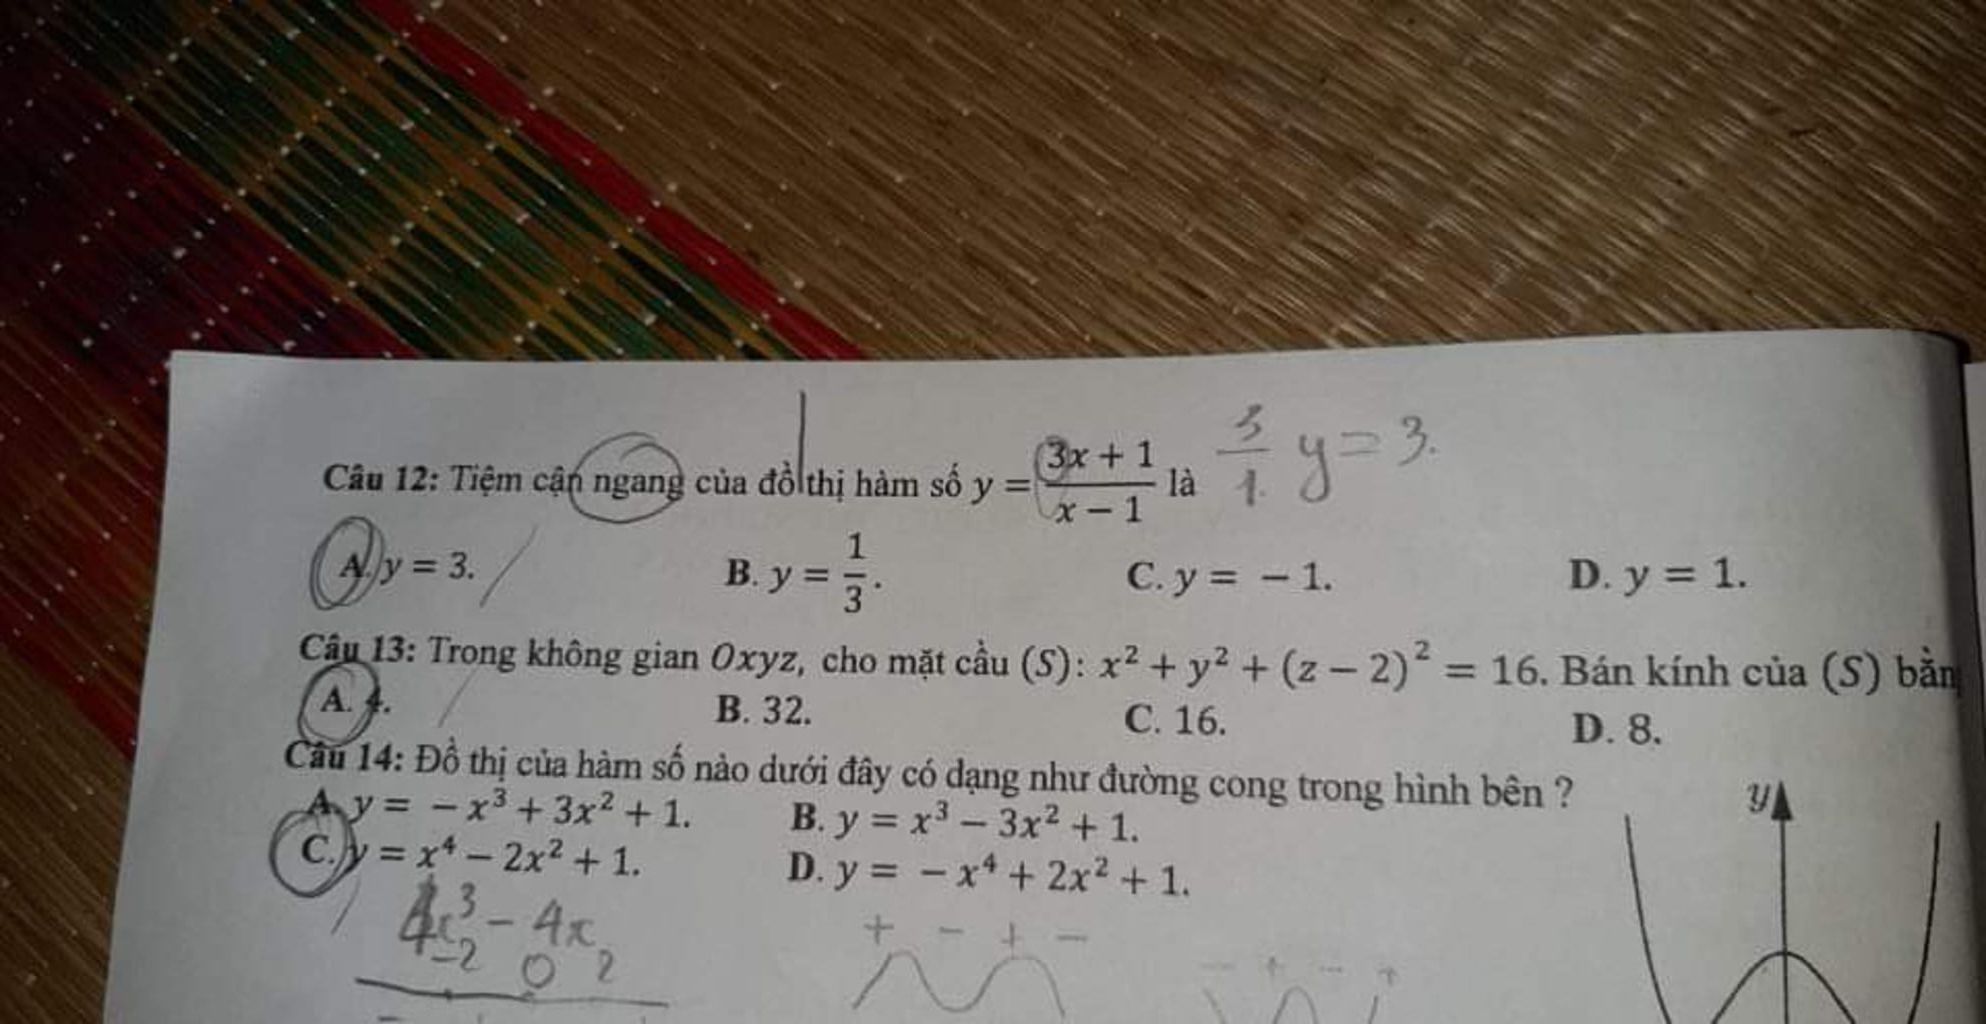 Câu 12: Tiệm cận ngang của đồ thị hàm số y = (3x + 1)/(x − 1) là 3/1 y = 3.
A. y = 3. B. y = 1/3. C. y = − 1. D. y = 1.
Câu 13: Trong không gian Oxyz, cho mặt cầu (S): x² + y² + (z − 2)² = 16. Bán kính của (S) bằn
A. 4. B. 32. C. 16. D. 8.
Câu 14: Đồ thị của hàm số nào dưới đây có dạng như đường cong trong hình bên ?
A. y = − x³ + 3x² + 1. B. y = x³ − 3x² + 1.
C. y = x⁴ − 2x² + 1. D. y = − x⁴ + 2x² + 1.
y
4x³ − 4x
−2 0 2
+ − + −
− + − +